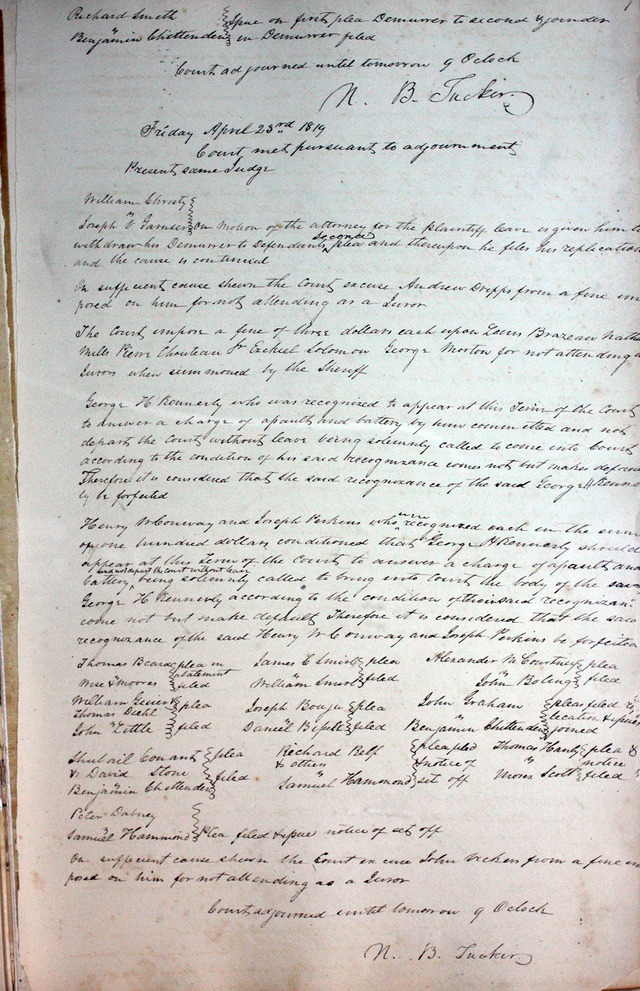 Richard Smith
vs
Benjamin Chittenden } Issue on first plea Demurrer to second & joinder in Demurrer filed
Court adjourned until tomorrow 9 Oclock
N. B. Tucker
Friday April 23rd 1819
Court met pursuant to adjournment
Present same Judge
William Christy
vs
Joseph W Garnier } On Motion of the attorney for the plaintiff leave is given him to
withdraw his Demurrer to Defendants second plea and thereupon he files his replication
and the cause is continued
On sufficient cause shewn the Court excuse Andrew Dripps from a fine im
posed on him for not attending as a Juror
The Court impose a fine of three dollars each upon Louis Brazeau Nathn
Mills Pierre Chouteau Jr Ezekiel Solomon George Morton for not attending as
Jurors when summoned by the Sheriff
George H Kennerly who was recognized to appear at this Term of the Court
to answer a charge of assault and battery by him committed and not
depart the Court without leave being solemnly called to come into Court
according to the condition of his said recognizance comes not but makes default
Therefore it is considered that the said recognizance of the said George H Kenner
ly be forfeited
Henry W Conway and Joseph Perkins who were recognized each in the sum
of one hundred dollars conditioned that George H Kennerly should
appear at this Term of the Court to answer a charge of assault and
battery and not depart the Court without leave being solemnly called to bring into Court the body of the said
George H Kennerly according to the condition of their said recognizan
come not but make default Therefore it is considered that the said
recognizance of the said Henry W Conway and Joseph Perkins be forfeited
Thomas Beard vs Wise & Moores } plea in abatement filed
James C Smirl vs William Smirl } plea filed
Alexander McCourtney vs John Boling } plea filed
William Geuier Thomas Diehl vs John Little } plea filed
Joseph Bouju vs Daniel Bissell } plea filed
John Graham vs Benjamin Chittenden } pleas filed re
lication & issue joined
Shubail Conant & David Stone vs Benjamin Chittenden } plea filed
Richard Relf & others vs Samuel Hammond } plea filed & notice of set off
Thomas Hanly vs Moses Scott } plea & notice filed
Peter Dabney
vs
Samuel Hammond } Plea filed & issue notice of set off
On sufficient cause shewn the Court excuse John Vickers from a fine im
posed on him for not attending as a Juror
Court adjourned until tomorrow 9 Oclock
N. B. Tucker